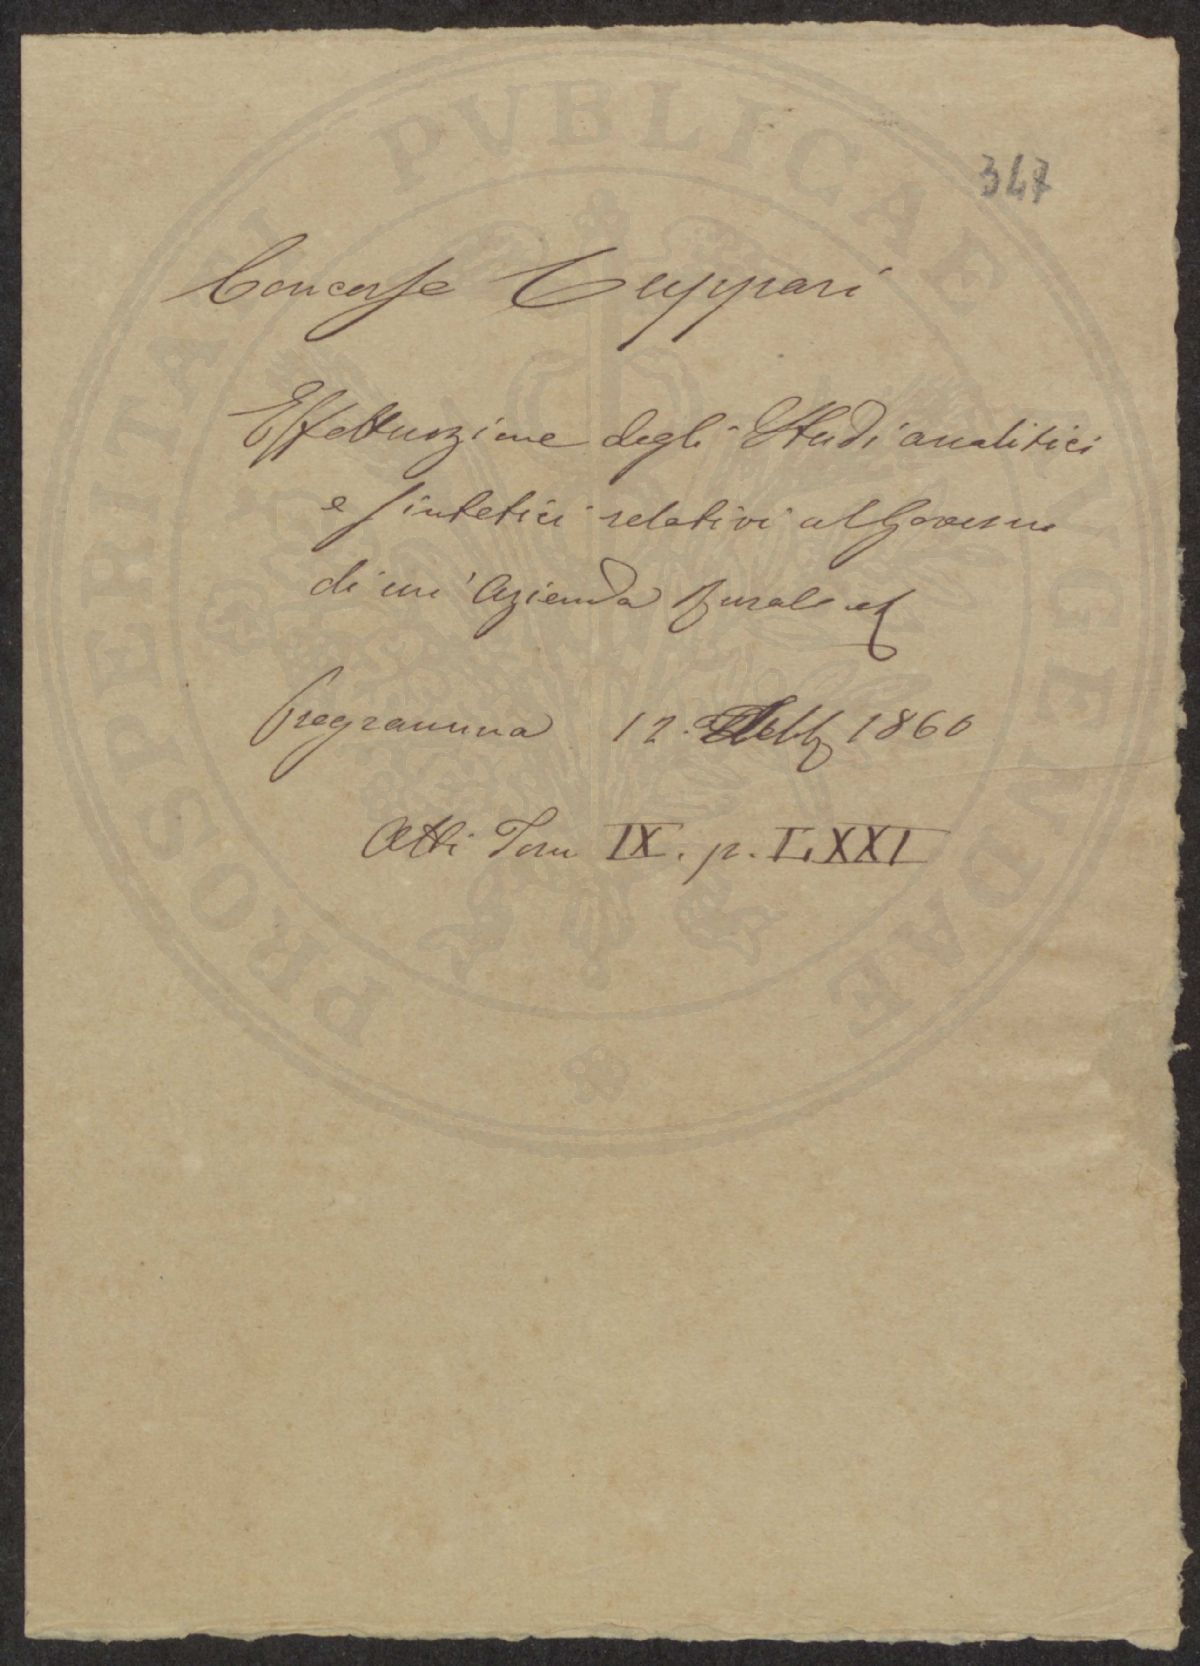 347
Concorso Cuppari
Effettuazione degli Studi analitici
e sintetici relativi al Governo
di un' Azienda Rurale
Programma 12. 1860
Atti Tom IX. p. LXXI
PROSPERITATI PVBLICAE AVGENDAE